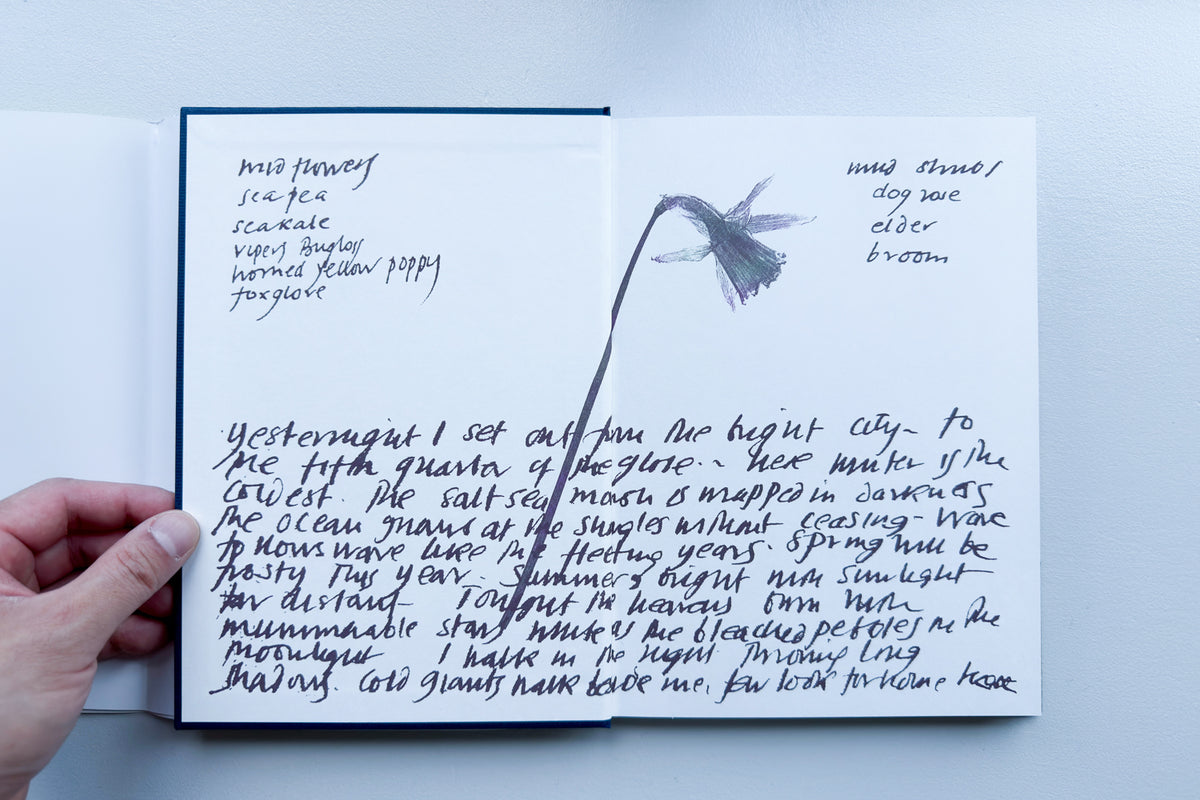 wild flowers
sea pea
seakale
vipers Bugloss
horned yellow poppy
foxglove
wild shrubs
dog rose
elder
broom
Yesternight I set out from the bright city – to
the fifth quarter of the globe. – here winter is the
coldest. The salt sea marsh is wrapped in darkness
the ocean gnaws at the shingles without ceasing – wave
follows wave like the fleeting years. Spring will be
frosty this year. Summers bright with sunlight
far distant – Tonight the heavens burn with
innumerable stars white as the bleached pebbles in the
moonlight I walk in the night through long
shadows. Cold giants walk beside me. far look for home